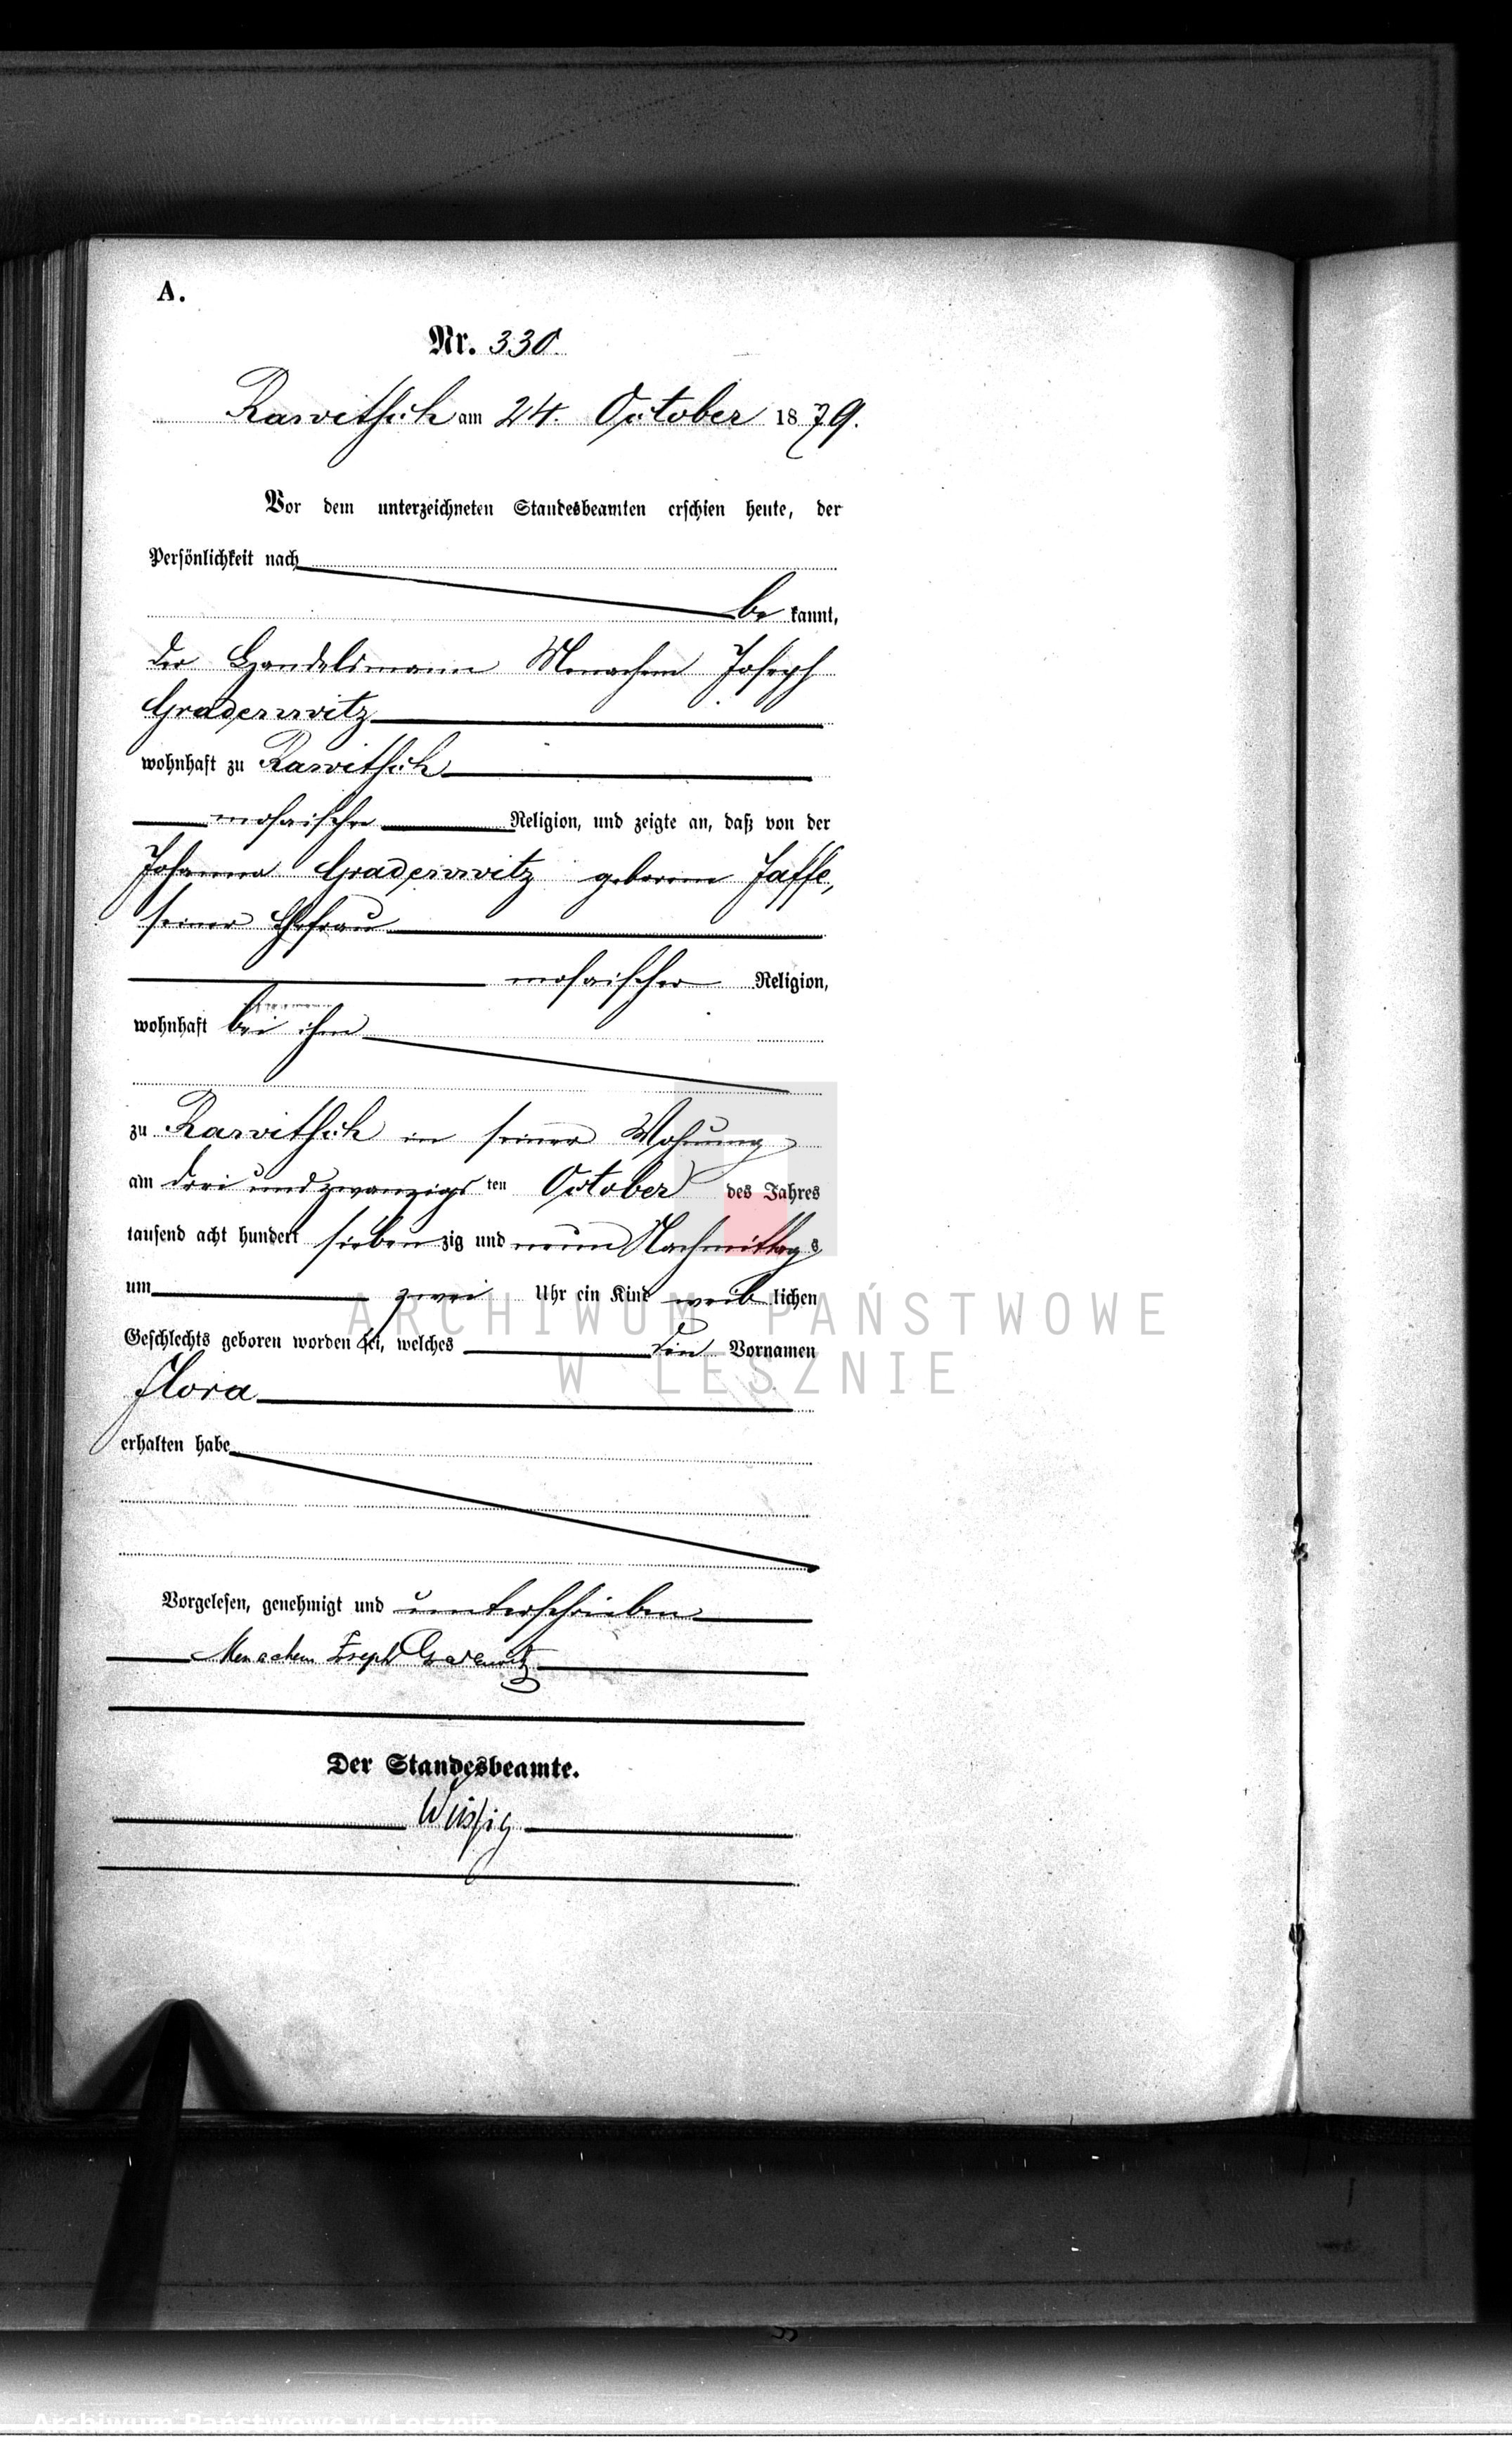 A.
Nr. 330.
Rawitsch am 24. October 1879.
Vor dem unterzeichneten Standesbeamten erschien heute, der
Persönlichkeit nach
be kannt,
der Handelsmann Menachem Joseph
Gradenwitz
wohnhaft zu Rawitsch
mosaischer Religion, und zeigte an, daß von der
Johanna Gradenwitz geborene Jaffe,
seiner Ehefrau
mosaischer Religion,
wohnhaft bei ihm
zu Rawitsch in seiner Wohnung
am drei und zwanzigsten October des Jahres
tausend acht hundert siebenzig und neun Nachmittags
um zwei Uhr ein Kind weiblichen
Geschlechts geboren worden sei, welches den Vornamen
Flora
erhalten habe
Vorgelesen, genehmigt und unterschrieben
Menachem Joseph Gradenwitz
Der Standesbeamte.
ARCHIWUM PAŃSTWOWE
W LESZNIE
Archiwum Państwowe w Lesznie